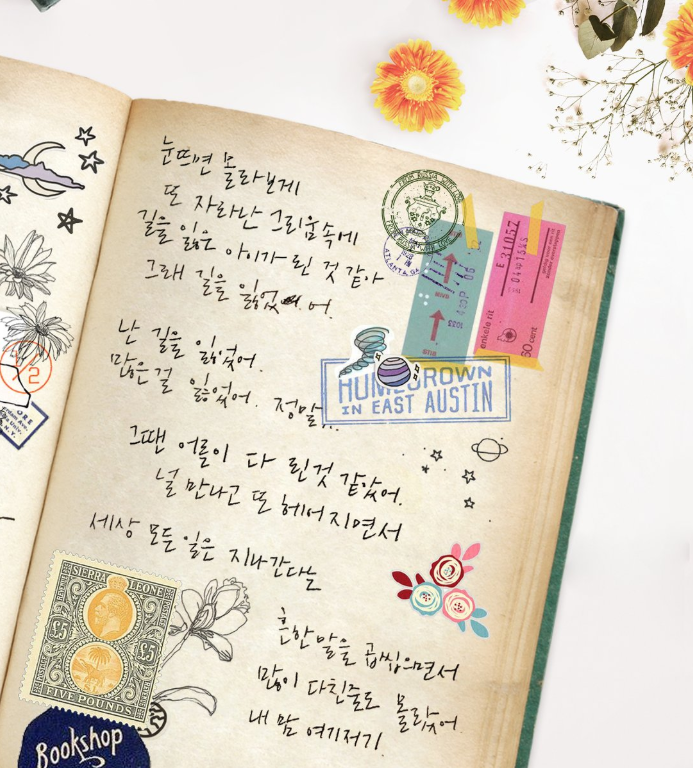 눈뜨면 몰라보게
또 자라난 그리움속에
길을 잃은 아이가 된 것 같아
그래 길을 잃었어.
난 길을 잃었어.
많은걸 잃었어. 정말...
그땐 어른이 다 된것 같았어.
널 만나고 또 헤어지면서
세상 모든 일은 지나간다는
흔한 말을 곱씹으면서
많이 다친줄도 몰랐어.
내 맘 여기저기
ATLANTA, GA
E 31052
enkele rit
50 cent
HOMEGROWN
IN EAST AUSTIN
SIERRA LEONE
£5 £5
FIVE POUNDS
Bookshop